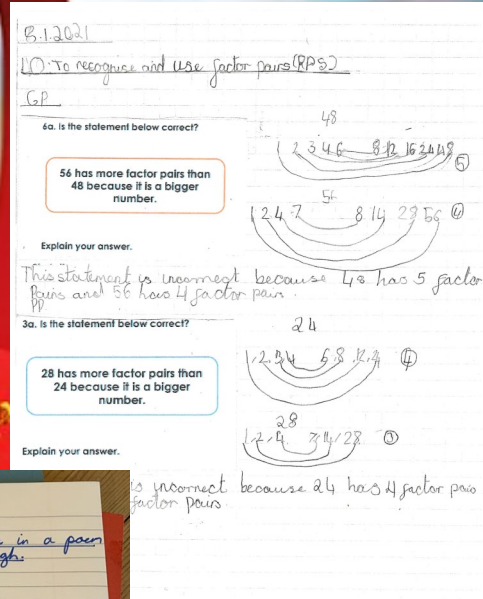 5.1.2021
LO: To recognise and use factor pairs (RPS)
GP
6a. Is the statement below correct?
56 has more factor pairs than
48 because it is a bigger
number.
48
1 2 3 4 6 8 12 16 24 48
5
56
1 2 4 7 8 14 28 56
4
Explain your answer.
This statement is incorrect because 48 has 5 factor
Pairs and 56 has 4 factor pairs.
PP
3a. Is the statement below correct?
28 has more factor pairs than
24 because it is a bigger
number.
24
1, 2, 3, 4 6, 8 12, 24
4
28
1, 2, 4 7, 14, 28
3
Explain your answer.
is incorrect because 24 has 4 factor pairs
factor pairs.
in a poem
gh.